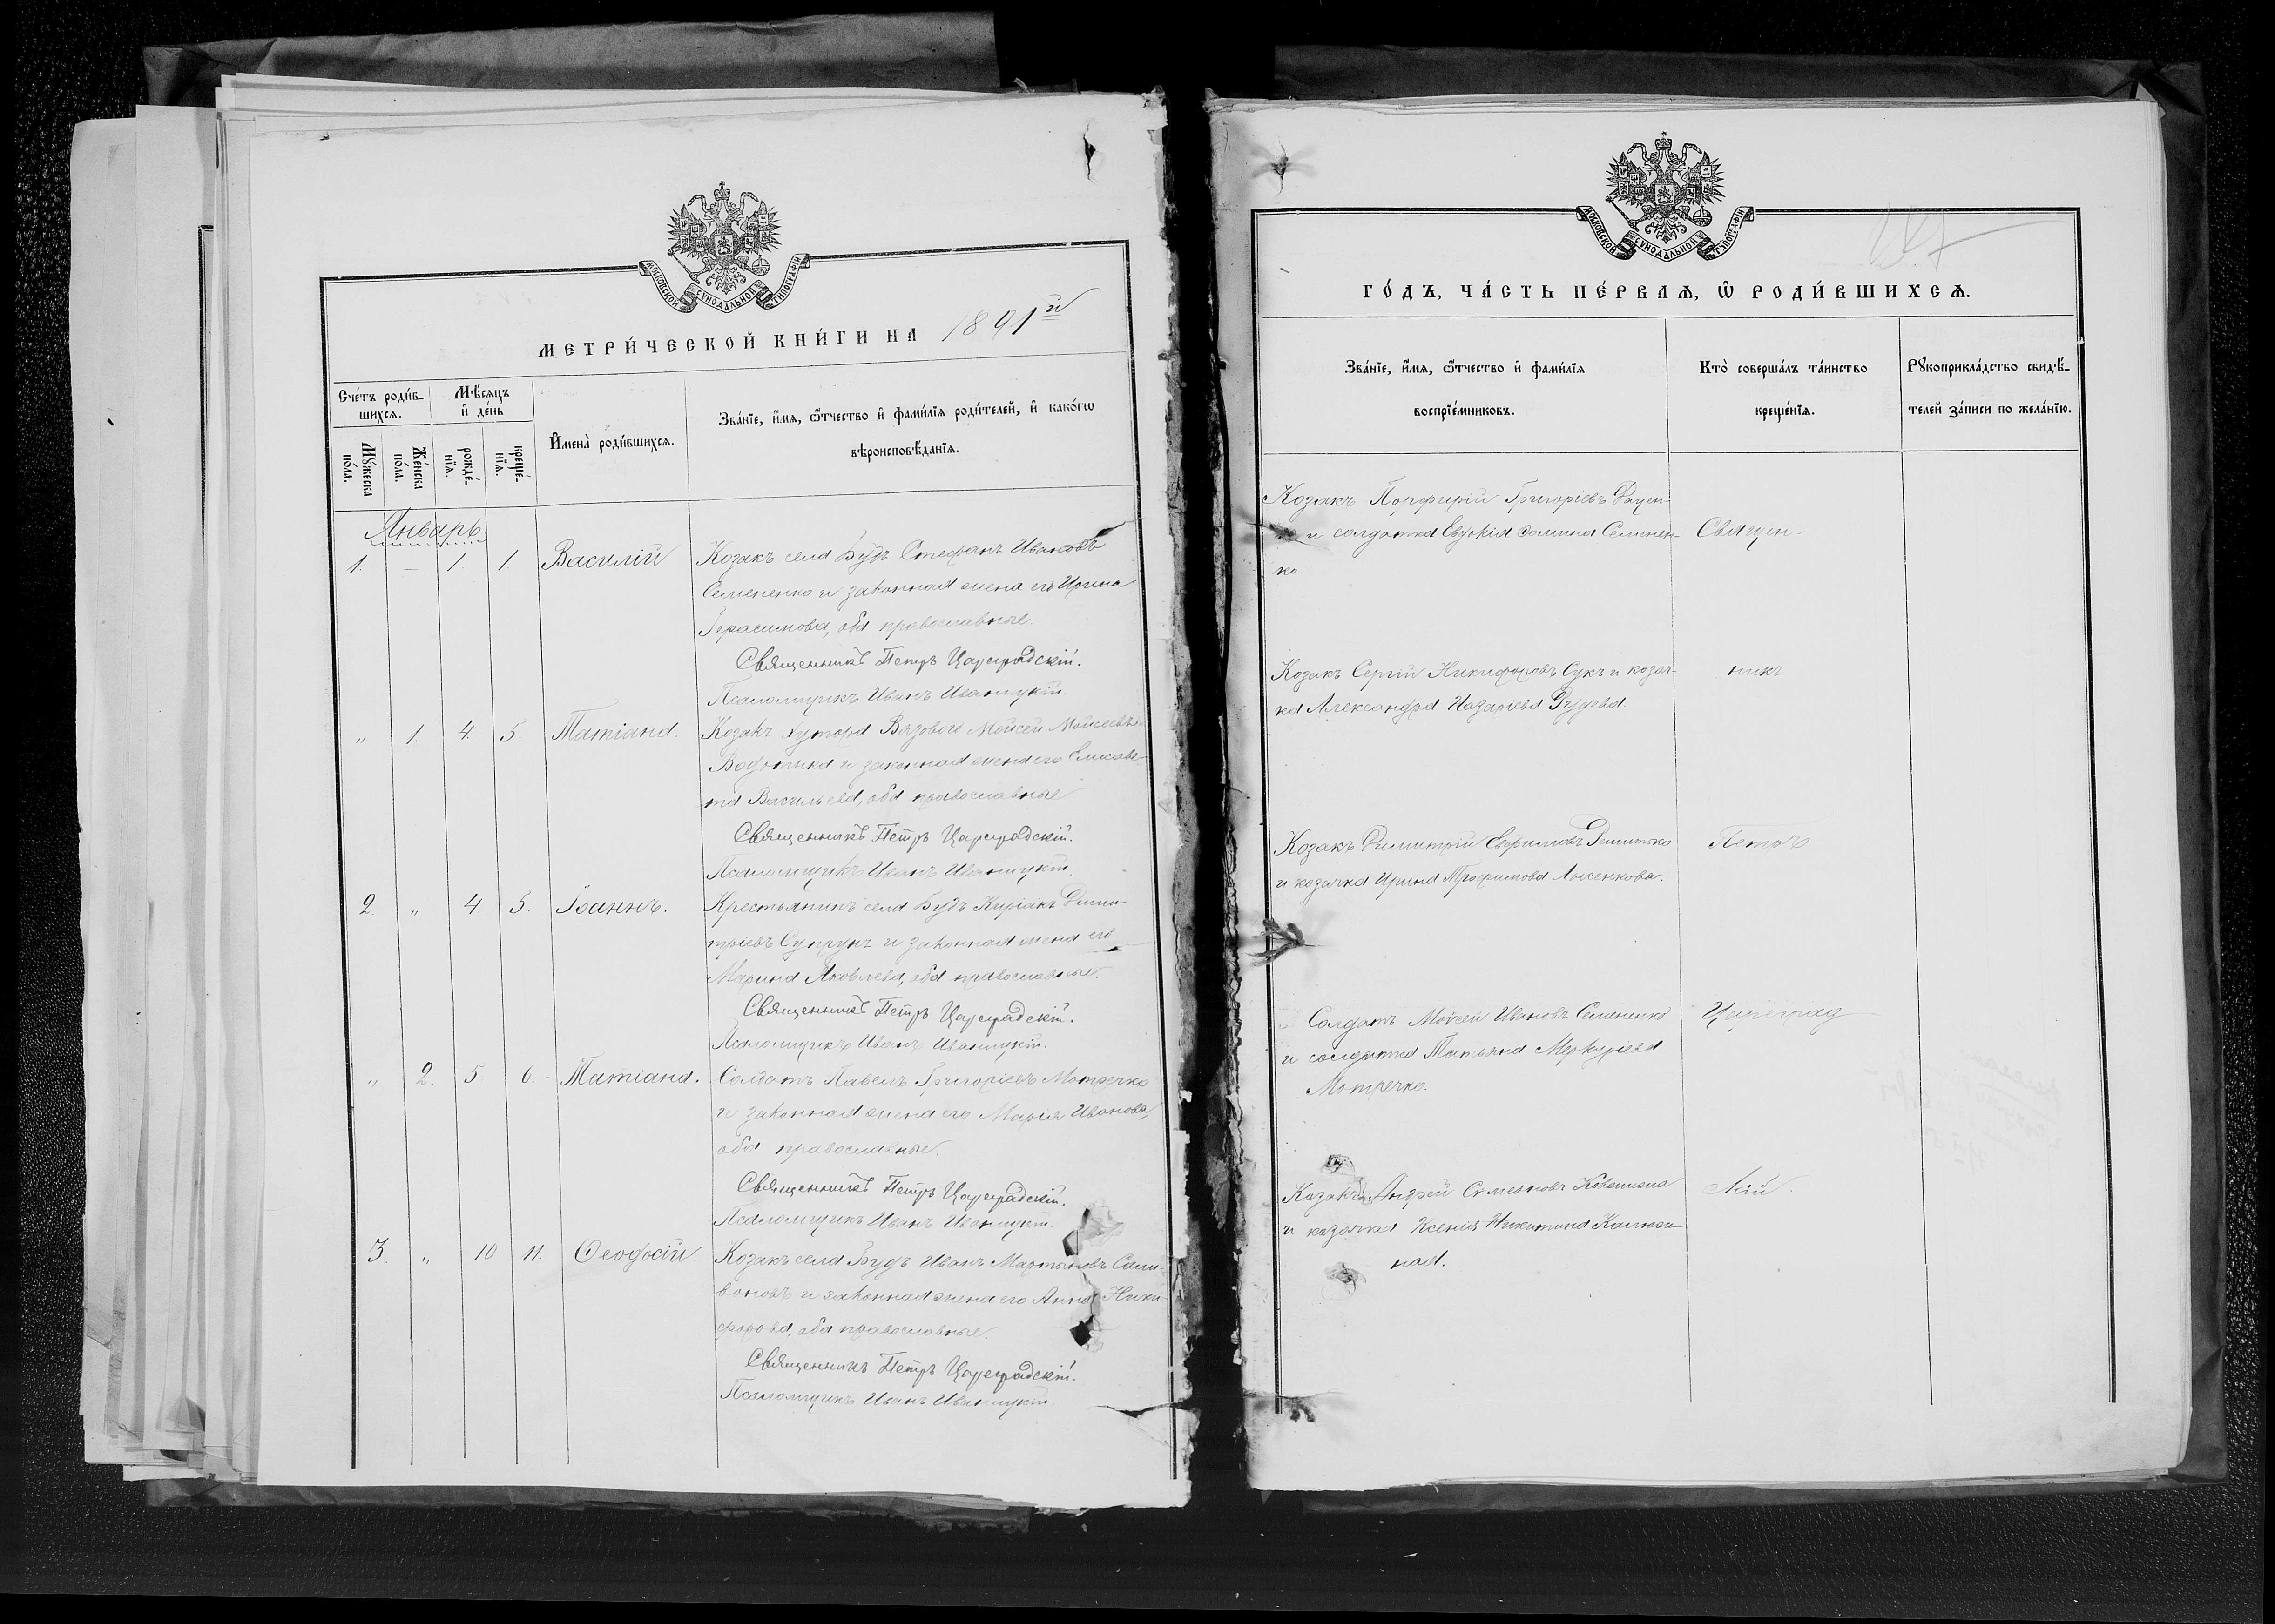 МОСКОВСКОЙ СѴНОДАЛЬНОЙ ТѴПОГРАФІИ
МЕТРИ́ЧЕСКОЙ КНИ́ГИ НА 1891й
Сче́тъ роди́в-
шихсѧ.
Мѣ́сѧцъ
и҆ де́нь
Мꙋ́жеска
по́ла.
Же́нска
по́ла.
рожде́-
нїѧ.
креще́-
нїѧ.
И҆мена̀ роди́вшихсѧ.
Зва́нїе, и҆́мѧ, ѻ҆́тчество и҆ фами́лїѧ роди́телей, и҆ како́гѡ
вѣроисповѣ́данїѧ.
Январь
1. — 1. 1. Василій.
Козакъ села Будъ Стефанъ Ивановъ
Семененко и законная жена его Ирина
Герасимова, оба православные.
Священникъ Петръ Цареградскій.
Псаломщикъ Иванъ Иваницкій.
" 1. 4. 5. Татіана.
Козакъ хутора Вязового Мойсей Мойсеевъ
и законная жена его Елисаве-
та Васильева, оба православные
Священникъ Петръ Цареградскій.
Псаломщикъ Иванъ Иваницкій.
2. " 4. 5. Іоаннъ.
Крестьянинъ села Будъ Киріакъ Дими-
тріевъ Супрунъ и законная жена его
Марина Яковлева, оба православные.
Священникъ Петръ Цареградскій.
Псаломщикъ Иванъ Иваницкій.
" 2. 5. 6. Татіана.
Солдатъ Павелъ Григоріевъ Мотречко
и законная жена его Марія Иванова,
оба православные.
Священникъ Петръ Цареградскій.
Псаломщикъ Иванъ Иваницкій.
3. " 10 11. Ѳеодосій.
Козакъ села Будъ Иванъ Мартыновъ Сели-
вановъ и законная жена его Анна Ники-
форова, оба православные.
Священникъ Петръ Цареградскій.
Псаломщикъ Иванъ Иваницкій.
МОСКОВСКОЙ СѴНОДАЛЬНОЙ ТѴПОГРАФІИ
ГО́ДЪ, ЧА́СТЬ ПЕ́РВАѦ, Ѽ РОДИ́ВШИХСѦ.
Зва́нїе, и҆́мѧ, ѻ҆́тчество и҆ фами́лїѧ
воспрїе́мниковъ.
Кто̀ соверша́лъ та́инство
креще́нїѧ.
Рꙋкоприкла́дство свидѣ́-
телей за́писи по жела́нїю.
Козакъ Порфирій Григоріевъ
и солдатка Евдокія Семенен-
ко.
Козакъ Сергій Никифоровъ Сукъ и козач-
ка Александра Назаріева
Козакъ Димитрій Евфимовъ
и козачка Ирина Трофимова
Солдатъ Мойсей Ивановъ Семененко
и солдатка Татьяна Меркуріева
Мотречко.
Козакъ Андрей Симеоновъ
и козачка Ксенія Никитина
ная.
Священ-
никъ
Петръ
Цареград
скій.